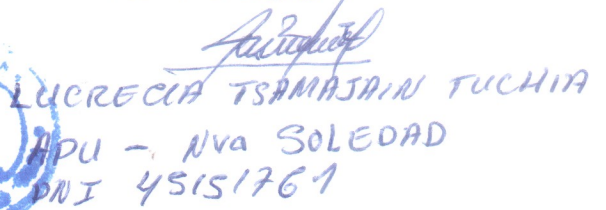 LUCRECIA TSAMAJAIN TUCHIA
APU - Nva SOLEDAD
DNI 45151761